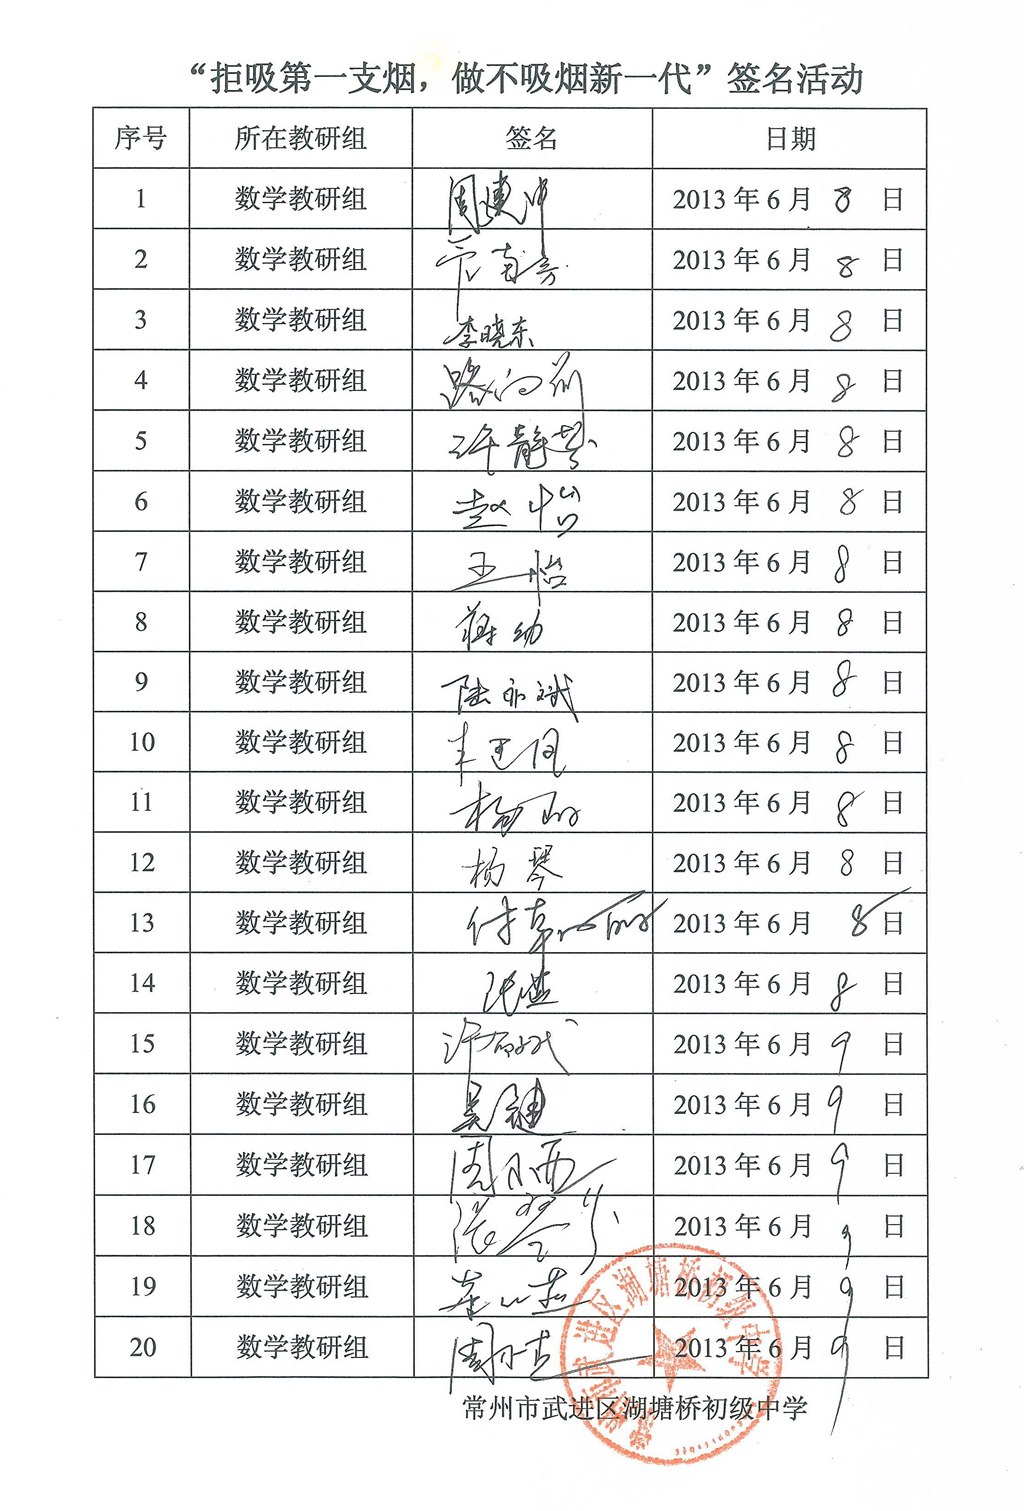 “拒吸第一支烟，做不吸烟新一代”签名活动
序号 所在教研组 签名 日期
1 数学教研组 周建冲 2013年6月8日
2 数学教研组 2013年6月8日
3 数学教研组 李晓东 2013年6月8日
4 数学教研组 2013年6月8日
5 数学教研组 许静芬 2013年6月8日
6 数学教研组 赵怡 2013年6月8日
7 数学教研组 王怡 2013年6月8日
8 数学教研组 蒋幼 2013年6月8日
9 数学教研组 陆亦斌 2013年6月8日
10 数学教研组 2013年6月8日
11 数学教研组 杨丽 2013年6月8日
12 数学教研组 杨琴 2013年6月8日
13 数学教研组 2013年6月8日
14 数学教研组 2013年6月8日
15 数学教研组 2013年6月9日
16 数学教研组 吴键 2013年6月9日
17 数学教研组 2013年6月9日
18 数学教研组 2013年6月9日
19 数学教研组 2013年6月9日
20 数学教研组 2013年6月9日
常州市武进区湖塘桥初级中学
常州市武进区湖塘桥初级中学